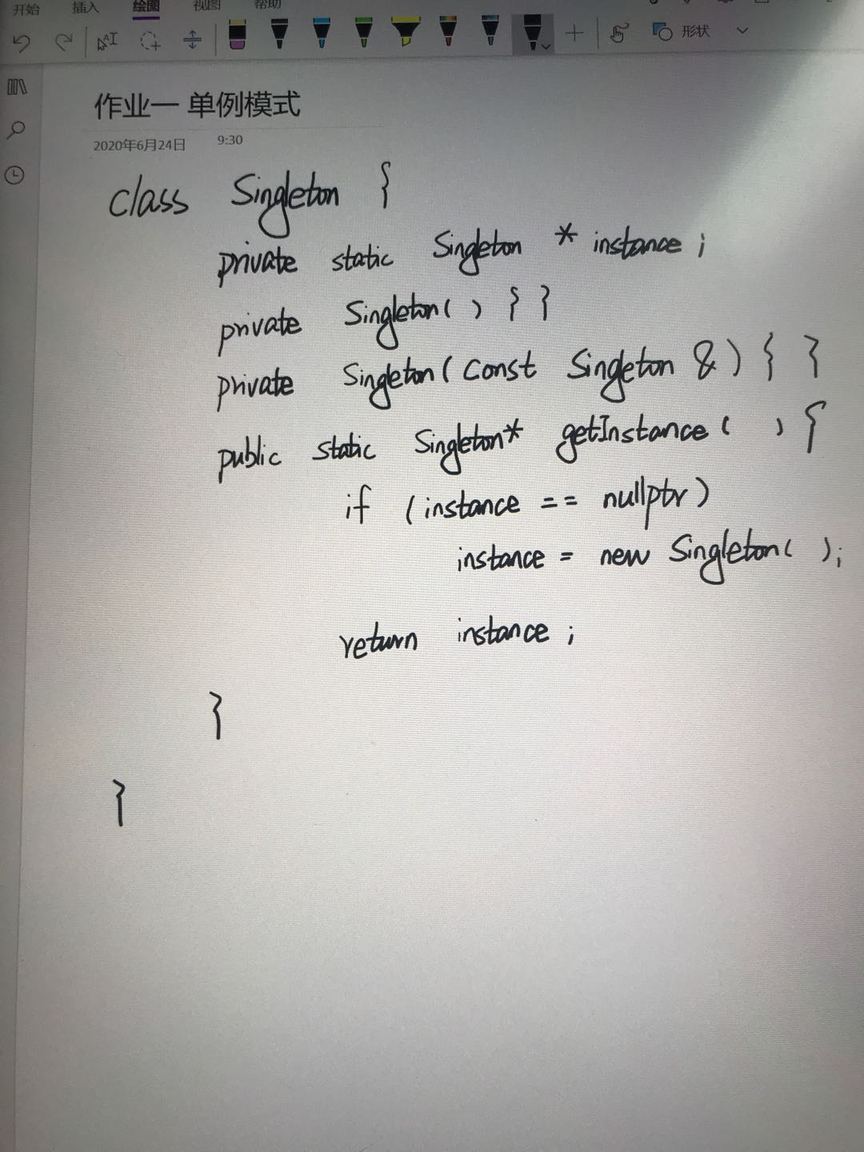 开始 插入 绘图 视图 帮助
形状
作业一 单例模式
2020年6月24日 9:30
class Singleton {
private static Singleton * instance ;
private Singleton( ) { }
private Singleton( const Singleton & ) { }
public static Singleton* getInstance ( ) {
if ( instance == nullptr )
instance = new Singleton( );
return instance ;
}
}